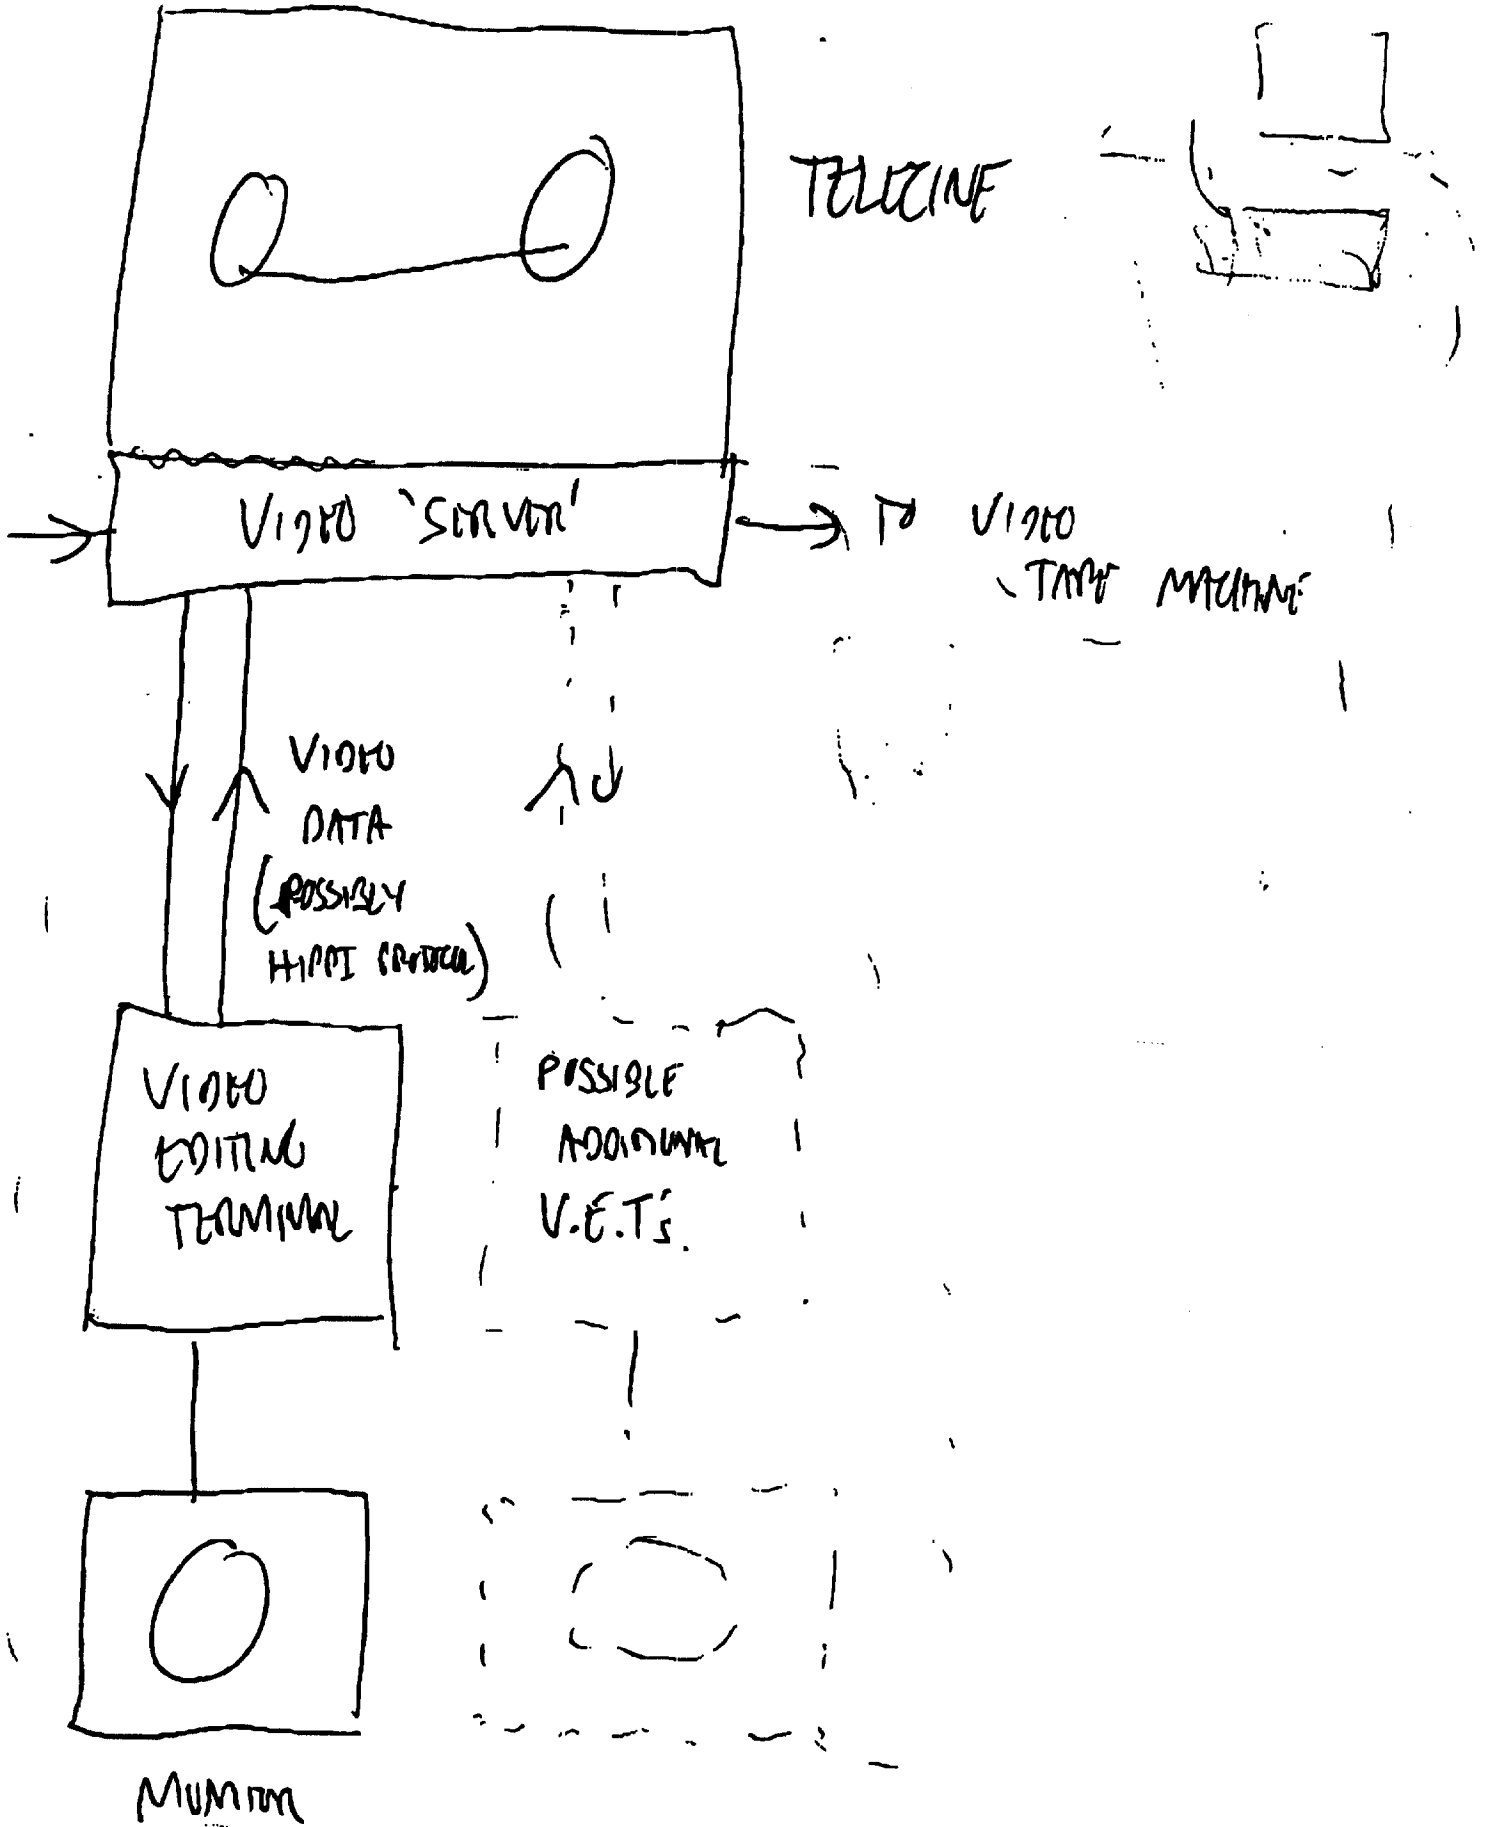 TELECINE
VIDEO 'SERVER'
TO VIDEO
TAPE MACHINE
VIDEO
DATA
(POSSIBLY
HIPPI PROTOCOL)
VIDEO
EDITING
TERMINAL
POSSIBLE
ADDITIONAL
V.E.T's.
MONITOR